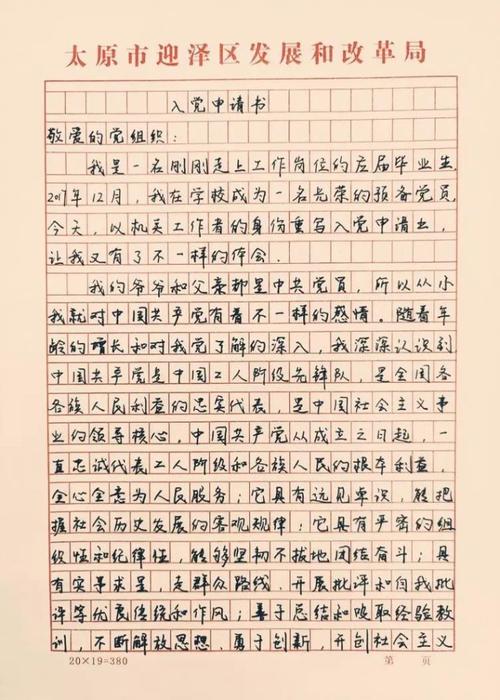 太原市迎泽区发展和改革局
入党申请书
敬爱的党组织：
我是一名刚刚走上工作岗位的应届毕业生，
2017年12月，我在学校成为一名光荣的预备党员，
今天，以机关工作者的身份重写入党申请书，
让我又有了不一样的体会。
我的爷爷和父亲都是中共党员，所以从小
我就对中国共产党有着不一样的感情。随着年
龄的增长和对我党了解的深入，我深深认识到
中国共产党是中国工人阶级先锋队，是全国各
各族人民利益的忠实代表，是中国社会主义事
业的领导核心，中国共产党从成立之日起，一
直忠诚代表工人阶级和各族人民的根本利益，
全心全意为人民服务；它具有远见卓识，能把
握社会历史发展的客观规律；它具有严密的组
织性和纪律性，能够坚韧不拔地团结奋斗；具
有实事求是，走群众路线，开展批评和自我批
评等优良传统和作风；善于总结和吸取经验教
训，不断解放思想，勇于创新，开创社会主义
20×19=380 第 页